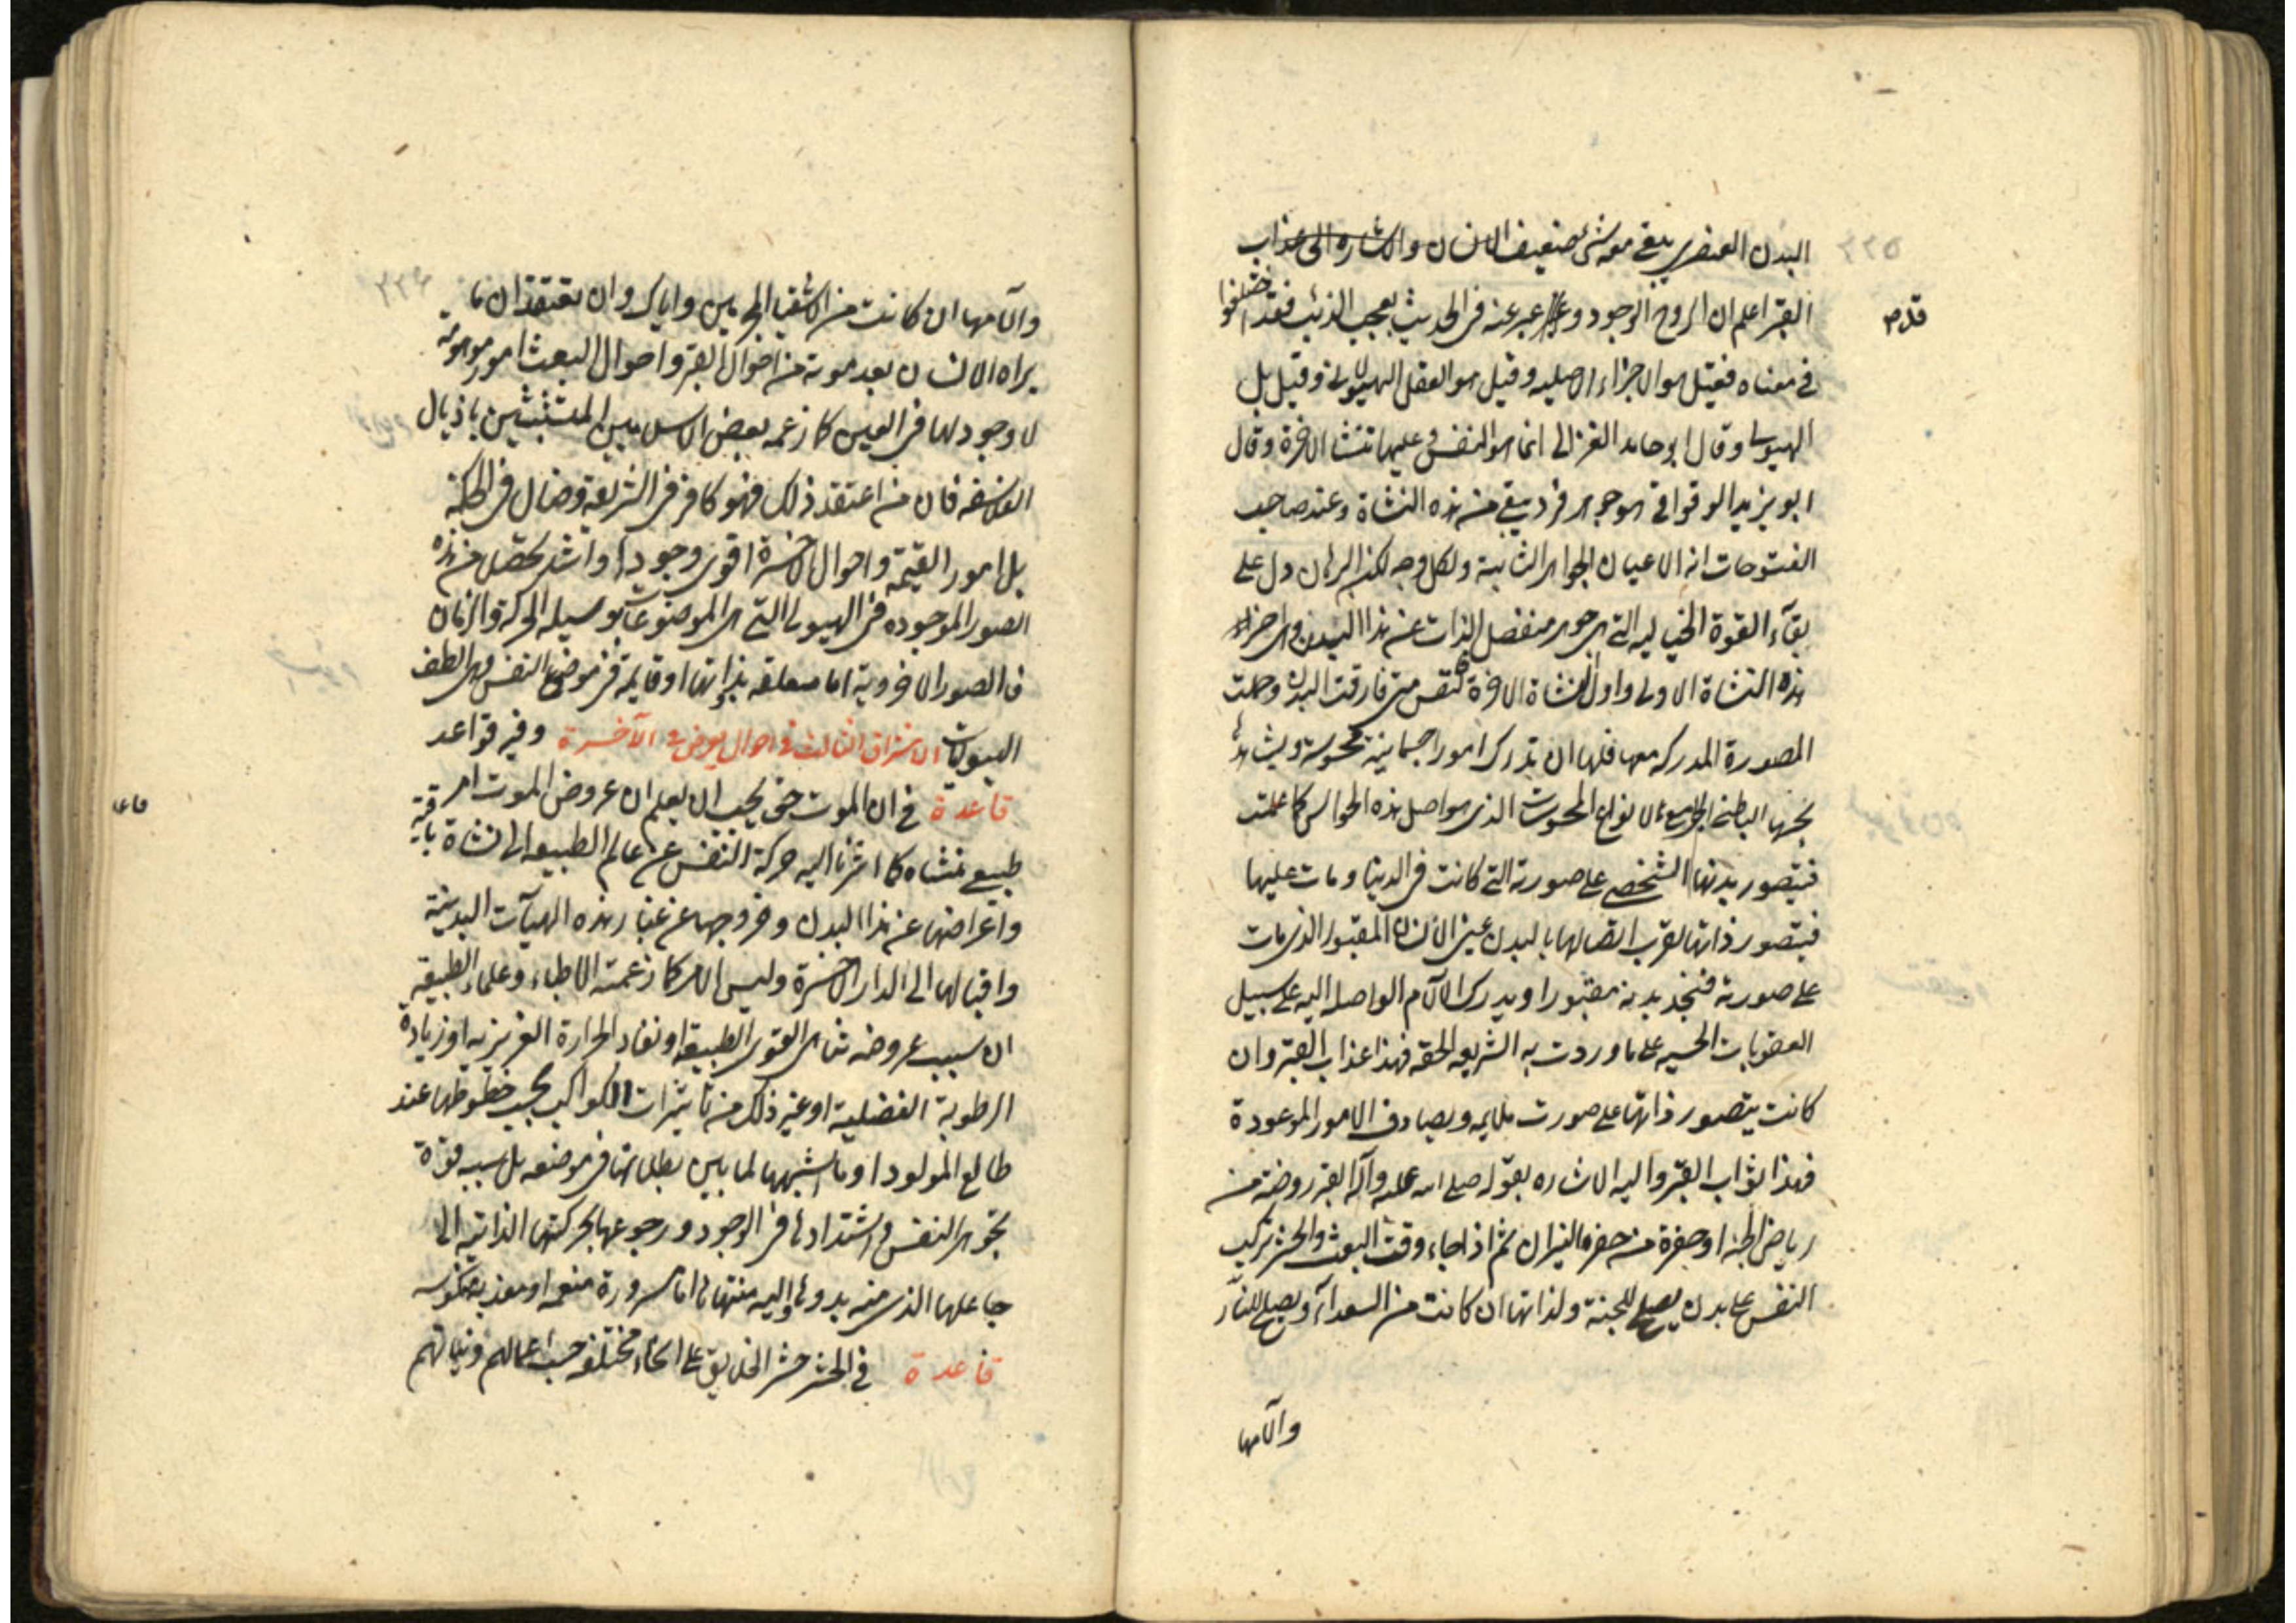 ٢٢٥
البدن العنصري يبقى معه شئ ضعيف الانسان والاشارة الى عذاب
القبر اعلم ان الروح الوجود وعبر عنه في الحديث بعجب الذنب فقد اختلفوا
في معناه فقيل هو الاجزاء الاصليه وقيل هو العقل الهيولاني وقيل بل
الهيولى وقال ابو حامد الغزالي انما هو النفس وعليها تنشا الاخرة وقال
ابو يزيد الوقواقي هو جوهر فرد يبقى من هذه النشاة وعند صاحب
الفتوحات انه الاعيان الجواهر الثابتة ولكل وجه لكن البرهان دل على
بقآء القوة الخياليه التي هي جوهر منفصل الذات عن هذا البدن وهي اخر
هذه النشاة الاولى واول النشاة الاخرة فالنفس متى فارقت البدن وحملت
المصورة المدركه معها فلها ان يدرك امورا جسمانية محسوسة ويشاهدها
بحسها الباطني الجامع لانواع المحسوسات الذي هو اصل هذه الحواس كما علمت
فيتصور بدنها الشخصي على صورته التي كانت في الدينا ومات عليها
فيتصور ذاتها لقرب اتصالها بالبدن عين الانسان المقبور الذي مات
على صورته فيجد بدنه مقبورا ويدرك الآلام الواصله اليه على سبيل
العقوبات الحسيه على ما وردت به الشريعه الحقه فهذا عذاب القبر وان
كانت يتصور ذاتها على صورت ملايمه ويصادف الامور الموعودة
فهذا ثواب القبر واليه الاشاره بقوله صلى الله عليه وآله القبر روضة من
رياض الجنه او حفرة من حفر النيران ثم اذا جاء وقت البعث والحشر تركب
النفس على بدن يصلح للجنة ولذاتها ان كانت من السعدآء ويصلح للنار
والامها
٢٢٦
والآمها ان كانت من الاشقيا المجرمين واياك وان تعتقد ان ما
يراه الانسان بعد موته من احوال القبر واحوال البعث امور موهومة
لا وجود لها في العين كما زعمه بعض الاسلاميين المتشبثين باذيال
الفلاسفه فان من اعتقد ذلك فهو كافر في الشريعة وضال في الحكمة
بل امور القيمة واحوال الاخرة اقوى وجودا واشد تحصلا من هذه
الصور الموجوده في الهيولى التي هي الموضوعات بوسيله الحركة والزمان
فالصور الاخروية اما معلقه بذاتها او قايمة في موضوع النفس وهي الطف
الهيوليات الاشراق الثالث في احوال يعرض في الآخرة وفيه قواعد
قاعدة في ان الموت حق يجب ان يعلم ان عروض الموت امر
طبيعي منشاه كما اشرنا اليه حركة النفس عن عالم الطبيعه الى نشاة باقية
واعراضها عن هذا البدن وخروجها عن غبار هذه الهيآت البدنية
واقبالها الى الدار الاخرة وليس الامر كما زعمته الاطباء وعلماء الطبيعة
ان سبب عروضه تناهي القوى الطبيعة او نفاد الحرارة الغريزيه او زيادة
الرطوبة الفضلية او غير ذلك من تاثيرات الكواكب بحسب خطوطها عند
طالع المولود او ما اشبهها لما بين بطلانها في موضعه بل سببه قوة
تجوهر النفس واشتدادها في الوجود ورجوعها بحركتها الذاتية الى
جاعلها الذي منه بدوها واليه منتهاها اما مسرورة منعمه او معذبه منكوسه
قاعدة في الحشر حشر الخلايق على انحاء مختلفه حسب اعمالهم ونياتهم